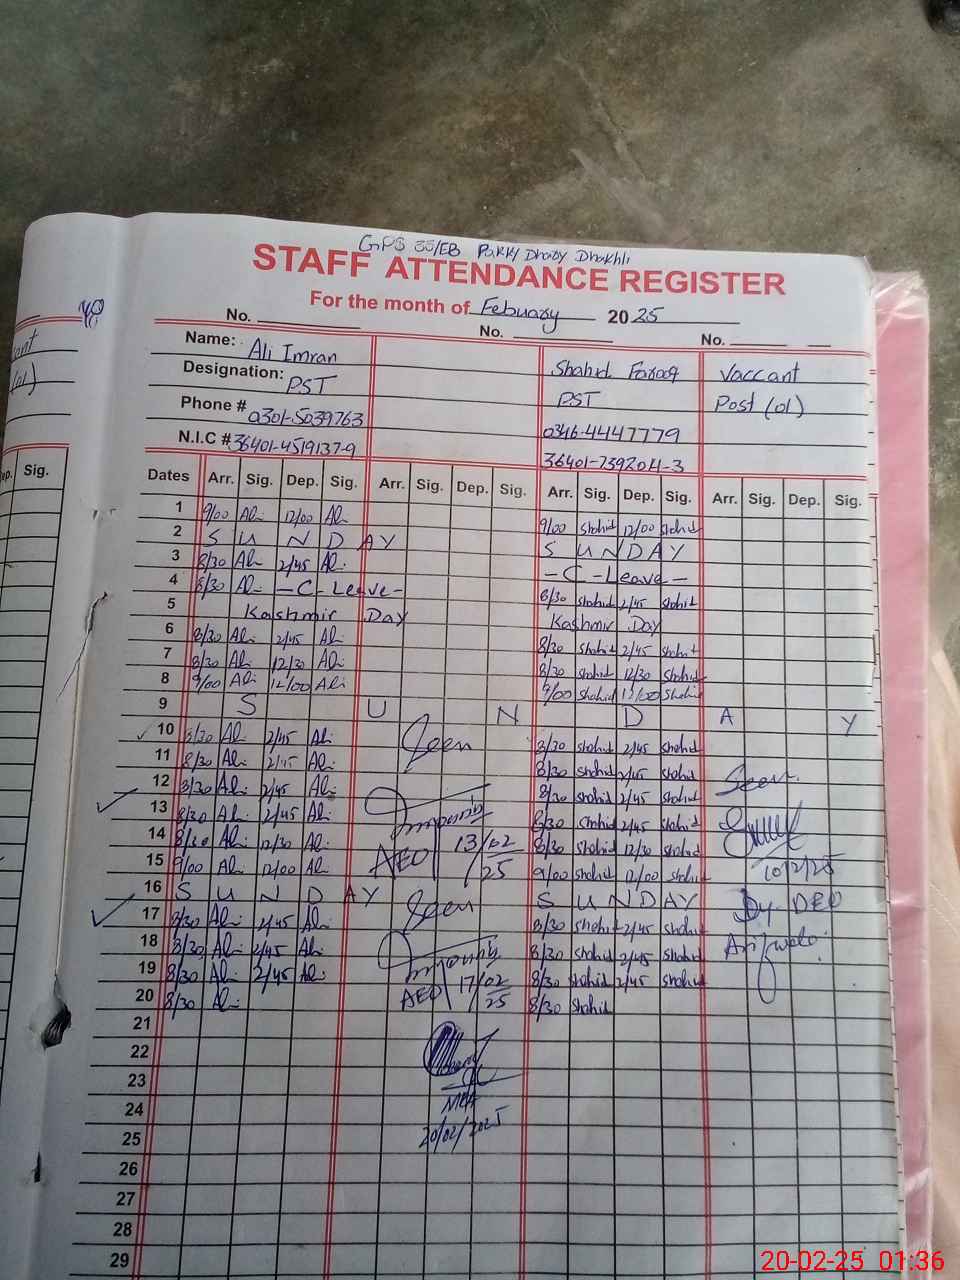 GPS 35/EB Pakky Dhady Dhakhli
STAFF ATTENDANCE REGISTER
For the month of Febuary 2025
No. No. No.
Name: Ali Imran Shahid Farooq Vaccant
Designation: PST PST Post (01)
Phone # 0301-5039763 0346-4447779
N.I.C # 36401-4519137-9 36401-7392041-3
Sig. Dates Arr. Sig. Dep. Sig. Arr. Sig. Dep. Sig. Arr. Sig. Dep. Sig. Arr. Sig. Dep. Sig.
1 9/00 Ali 12/00 Ali 9/00 Shahid 12/00 Shahid
2 SUNDAY SUNDAY
3 8/30 Ali 2/45 Ali -C-Leave-
4 8/30 Ali -C-Leave- 8/30 Shahid 2/45 Shahid
5 Kashmir Day Kashmir Day
6 8/30 Ali 2/45 Ali 8/30 Shahid 2/45 Shahid
7 8/30 Ali 12/30 Ali 8/30 Shahid 12/30 Shahid
8 9/00 Ali 12/00 Ali 9/00 Shahid 12/00 Shahid
9 SUNDAY
10 8/30 Ali 2/45 Ali Seen 8/30 Shahid 2/45 Shahid
11 8/30 Ali 2/45 Ali 8/30 Shahid 2/45 Shahid Seen
12 8/30 Ali 2/45 Ali 8/30 Shahid 2/45 Shahid
13 8/30 Ali 2/45 Ali 8/30 Shahid 2/45 Shahid
14 8/30 Ali 12/30 Ali AEO 13/02/25 8/30 Shahid 12/30 Shahid
15 9/00 Ali 12/00 Ali 9/00 Shahid 12/00 Shahid 10/2/25
16 SUNDAY SUNDAY Dy-DEO
17 8/30 Ali 2/45 Ali Seen 8/30 Shahid 2/45 Shahid
18 8/30 Ali 2/45 Ali 8/30 Shahid 2/45 Shahid Arifwala
19 8/30 Ali 2/45 Ali 8/30 Shahid 2/45 Shahid
20 8/30 Ali AEO 17/02/25 8/30 Shahid
21
22
23
24 MEA
25 20/02/2025
26
27
28
29
20-02-25 01:36